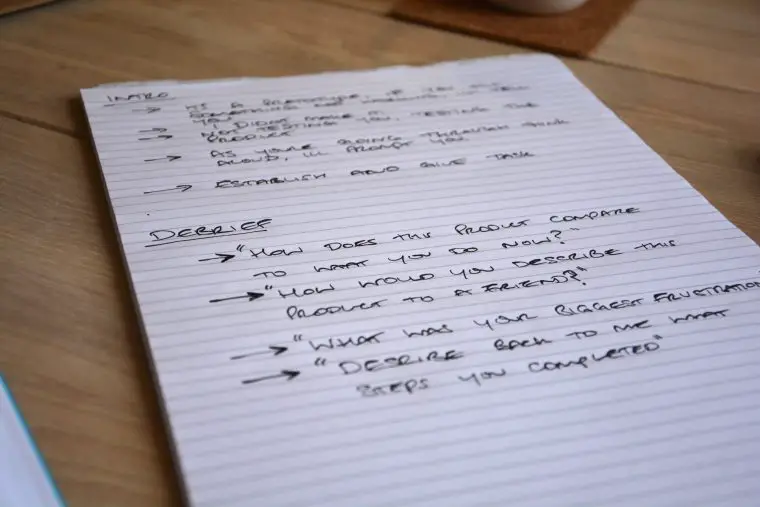 INTRO
→ IT'S A PROTOTYPE, IF YOU
SOMETHING NOT WORKING,
I DIDNT MAKE IT
→ NOT TESTING YOU, TESTING THE
PRODUCT
→ AS YOU'RE GOING THROUGH THINK
ALOUD, I'LL PROMPT YOU
→ ESTABLISH AND GIVE TASK
DEBRIEF
→ "HOW DOES THIS PRODUCT COMPARE
TO WHAT YOU DO NOW?"
→ "HOW WOULD YOU DESCRIBE THIS
PRODUCT TO A FRIEND?"
→ "WHAT WAS YOUR BIGGEST FRUSTRATION
→ "DESCRIBE BACK TO ME WHAT
STEPS YOU COMPLETED"